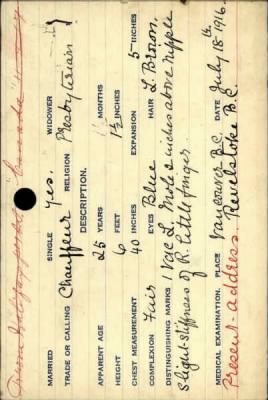 MARRIED SINGLE Yes. WIDOWER
TRADE OR CALLING Chauffeur RELIGION Presbyterian
DESCRIPTION.
APPARENT AGE 25 YEARS MONTHS
HEIGHT 6 FEET 1½ INCHES
CHEST MEASUREMENT 40 INCHES EXPANSION 5 INCHES
COMPLEXION Fair EYES Blue HAIR L. Brown.
DISTINGUISHING MARKS 1 Vac L. Mole 2 inches above nipple
slight stiffness of R. little finger.
MEDICAL EXAMINATION. PLACE Vancouver B.C. DATE July 18th 1916.
Present- address. Revelstoke B.C.